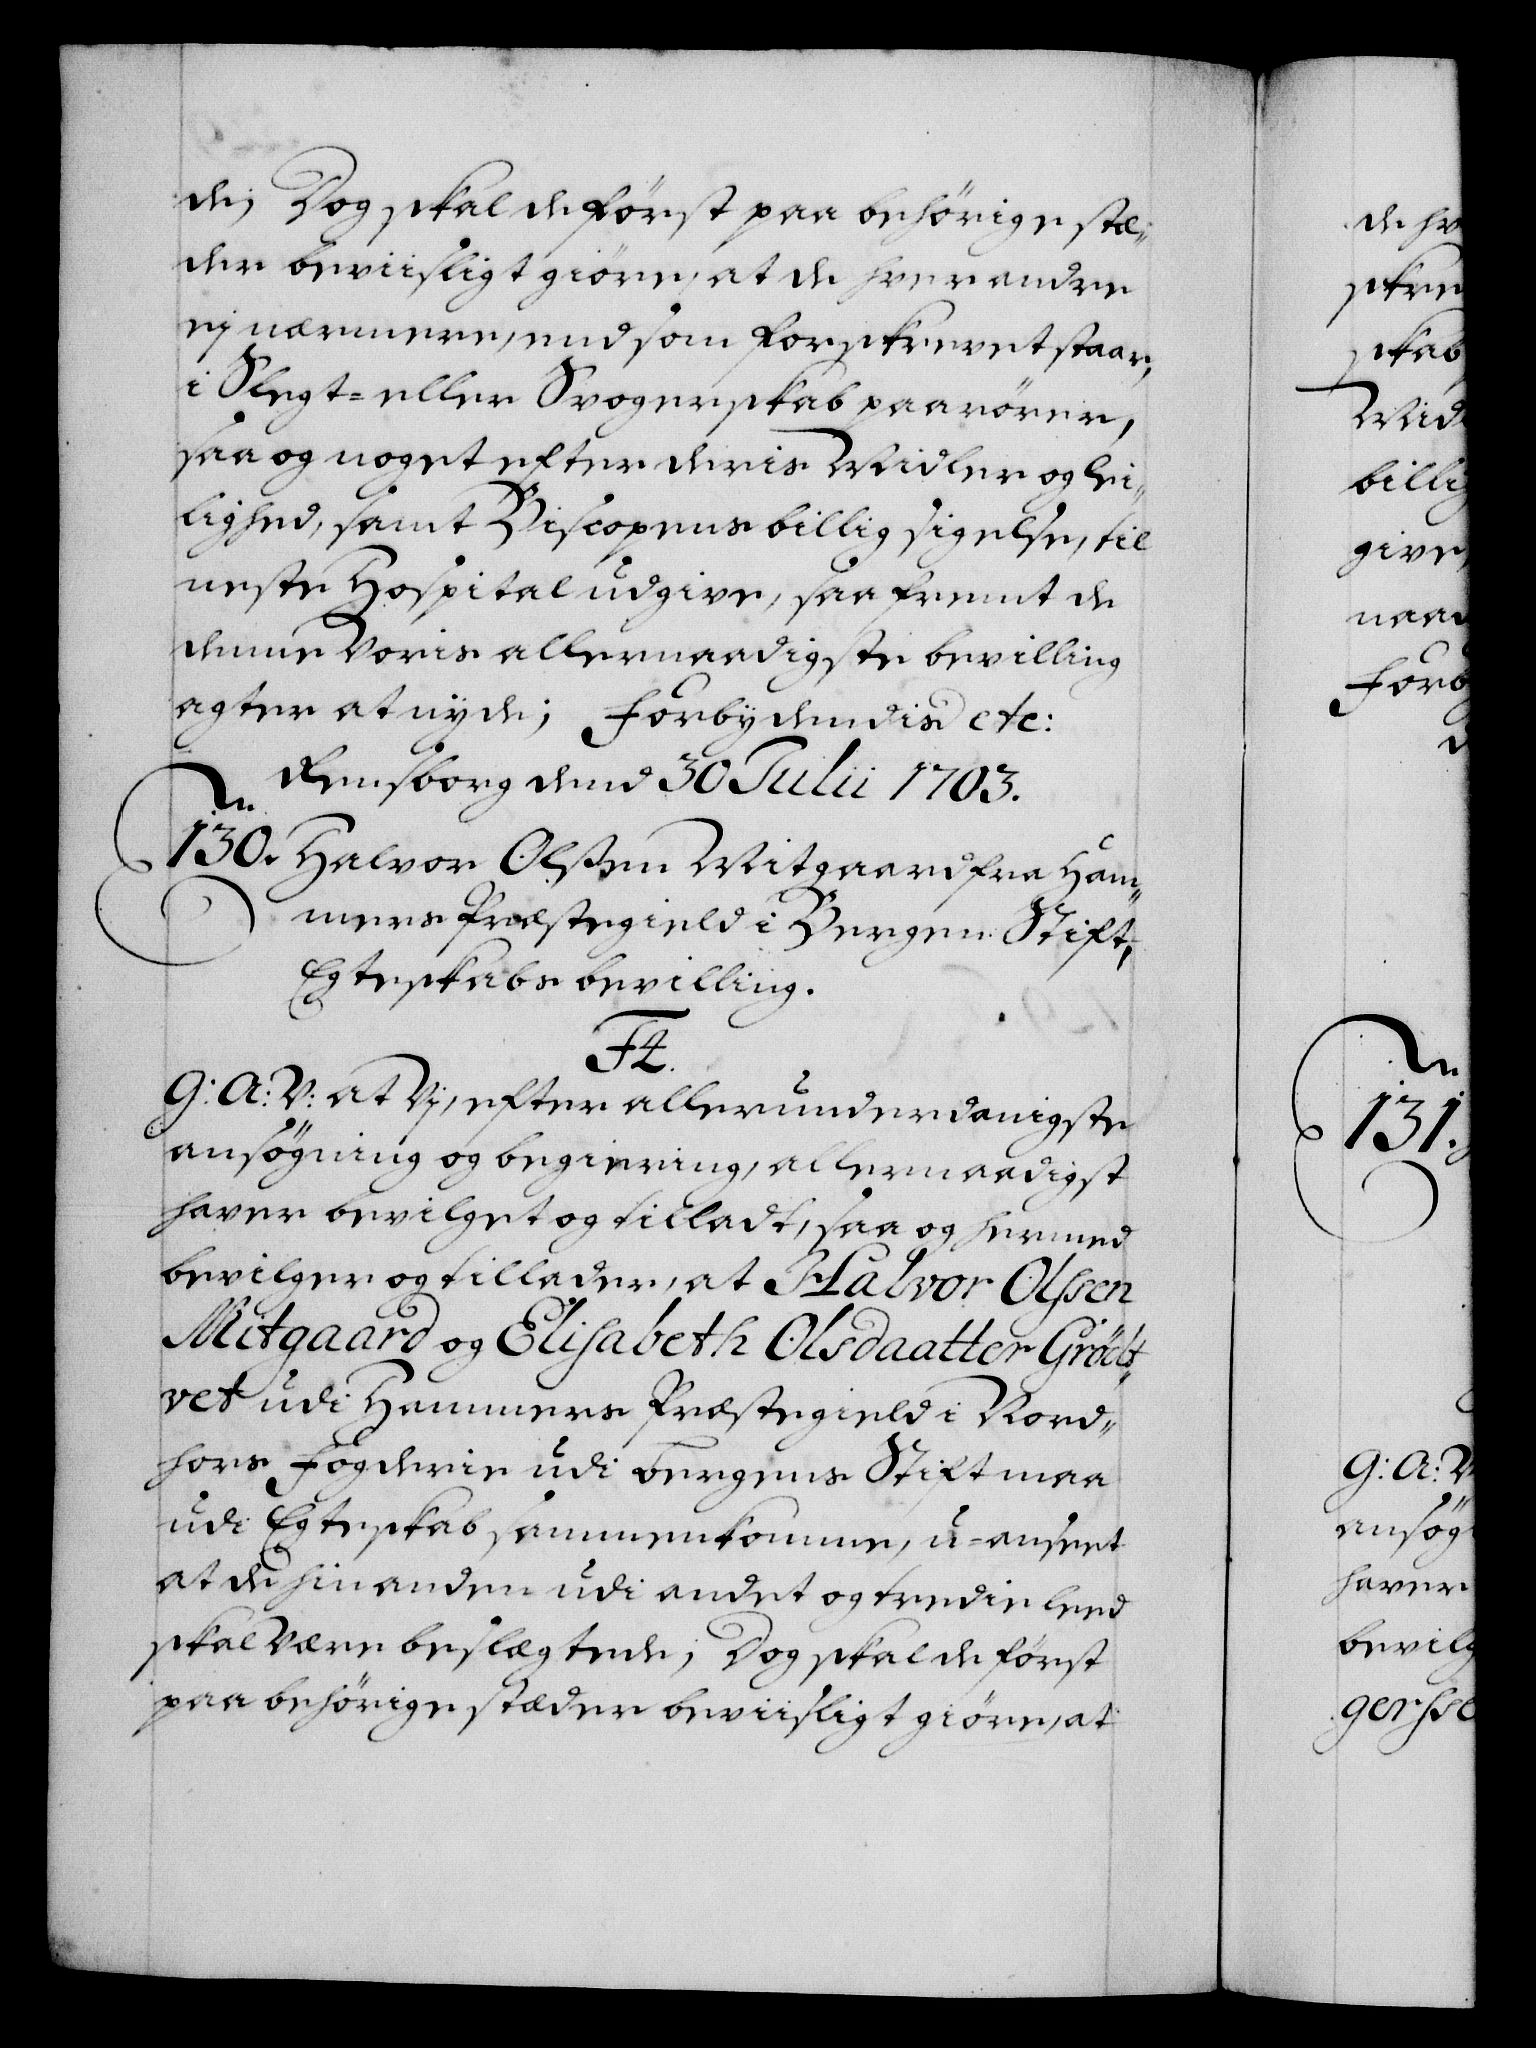 de; Dog skal de först paa behörige stæ„
der beviisligt giöre, at de hver andre
ej nærmere, end som forskrevet staar,
i Slegt= eller Svogerskab paarörer,
saa og noget efter deris Midler og lei„
lighed, samt Biscopens billig sigelse, til
neste Hospital udgive, saa fremt de
denne Voris allernaadigste bevilling
agter at nyde; Forbydendis etc:
Rensborg dend 30 Julii 1703.
130. Halvor Olssen Mitgaard fra Ham„
mers Præstegield i Bergens Stift,
Egteskabs bevilling.
F4.
G: A: V: at Vj, efter allerunderdanigste
ansögning og begiering, allernaadigst
haver bevilget og tilladt, saa og hermed
bevilger og tillader, at Halvor Olssen
Mitgaard og Elisabeth Olsdaatter Grödt„
vet udi Hammers Præstegield i Nord„
hors Fogderie udi Bergens Stift maa
udi Egteskab sammenkomme, u=anseet
at de hinanden udi andet og tredie leed
skal være beslægtede; Dog skal de först
paa behörige stæder beviisligt giöre, at
de hv
skre
skab
Midl
billig
give,
naad
Forb
131.
G: A: V
ansög
haver
bevilg
gersse